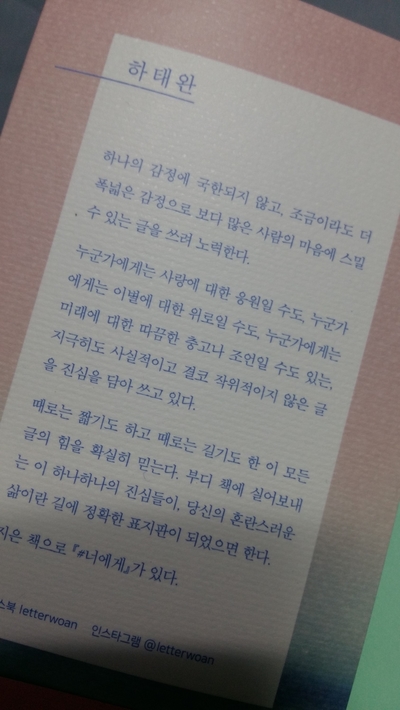 하태완
하나의 감정에 국한되지 않고, 조금이라도 더
폭넓은 감정으로 보다 많은 사람의 마음에 스밀
수 있는 글을 쓰려 노력한다.
누군가에게는 사랑에 대한 응원일 수도, 누군가
에게는 이별에 대한 위로일 수도, 누군가에게는
미래에 대한 따끔한 충고나 조언일 수도 있는,
지극히도 사실적이고 결코 작위적이지 않은 글
을 진심을 담아 쓰고 있다.
때로는 짧기도 하고 때로는 길기도 한 이 모든
글의 힘을 확실히 믿는다. 부디 책에 실어보내
는 이 하나하나의 진심들이, 당신의 혼란스러운
삶이란 길에 정확한 표지판이 되었으면 한다.
지은 책으로 『#너에게』가 있다.
스북 letterwoan 인스타그램 @letterwoan